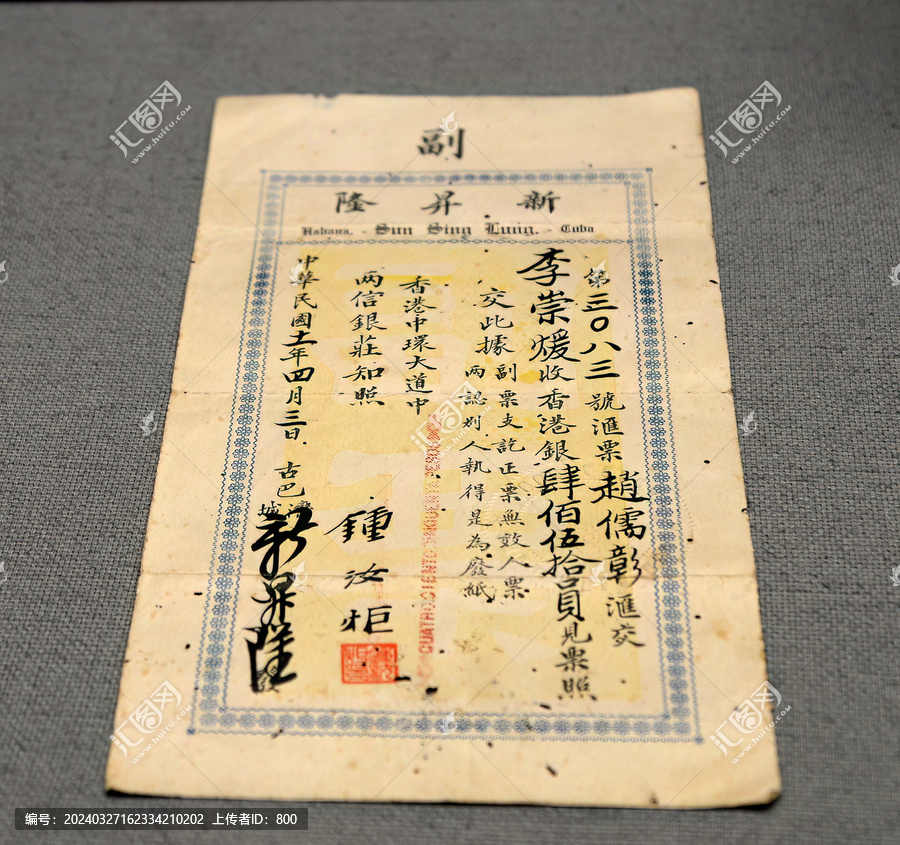 副
新昇隆
Habana. - Sun Sing Lung. - Cuba
第三〇八三號滙票趙儒彰滙交
李崇煖收香港銀肆佰伍拾員見票照
交此據副票支訖正票無效人票
兩認別人執得是為廢紙
香港中環大道中
两信銀莊知照
鍾汝柜
中華民國十一年四月三日 古巴灣城新昇隆發
CUATROCIENTO CINCUENTA
汇图网
www.huitu.com
编号：20240327162334210202 上传者ID：800